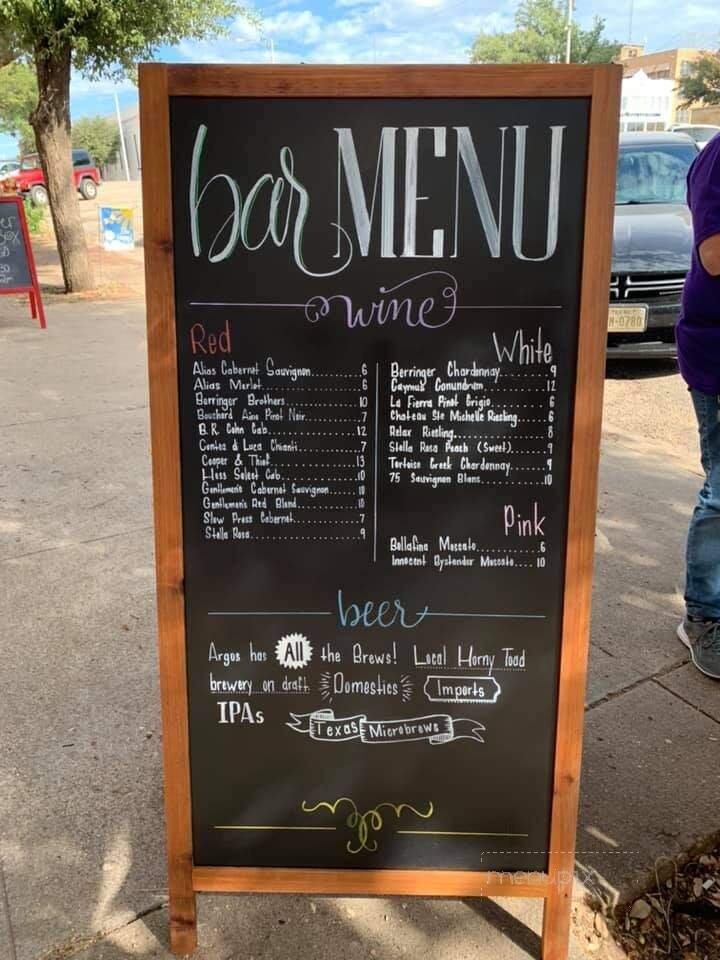 bar MENU
wine
Red
Alias Cabernet Sauvignon..........6
Alias Merlot..........6
Berringer Brothers..........10
Bouchard Aine Pinot Noir..........7
B.R. Cohn Cab..........12
Contes d Luca Chianti..........7
Cooper & Thief..........13
Hess Select Cab..........10
Gentlemen's Cabernet Sauvignon.....10
Gentlemen's Red Blend..........10
Slow Press Cabernet..........7
Stella Rosa..........9
White
Berringer Chardonnay..........9
Caymus Conundrum..........12
La Fierra Pinot Grigio..........6
Chateau Ste Michelle Riesling....6
Relax Riesling..........8
Stella Rosa Peach (Sweet)......9
Tortoise Creek Chardonnay......9
75 Sauvignon Blanc..........10
Pink
Bellafina Moscato..........6
Innocent Bystander Moscato....10
beer
Argos has All the Brews! Local Horny Toad
brewery on draft Domestics Imports
IPAs Texas Microbrews
menupix